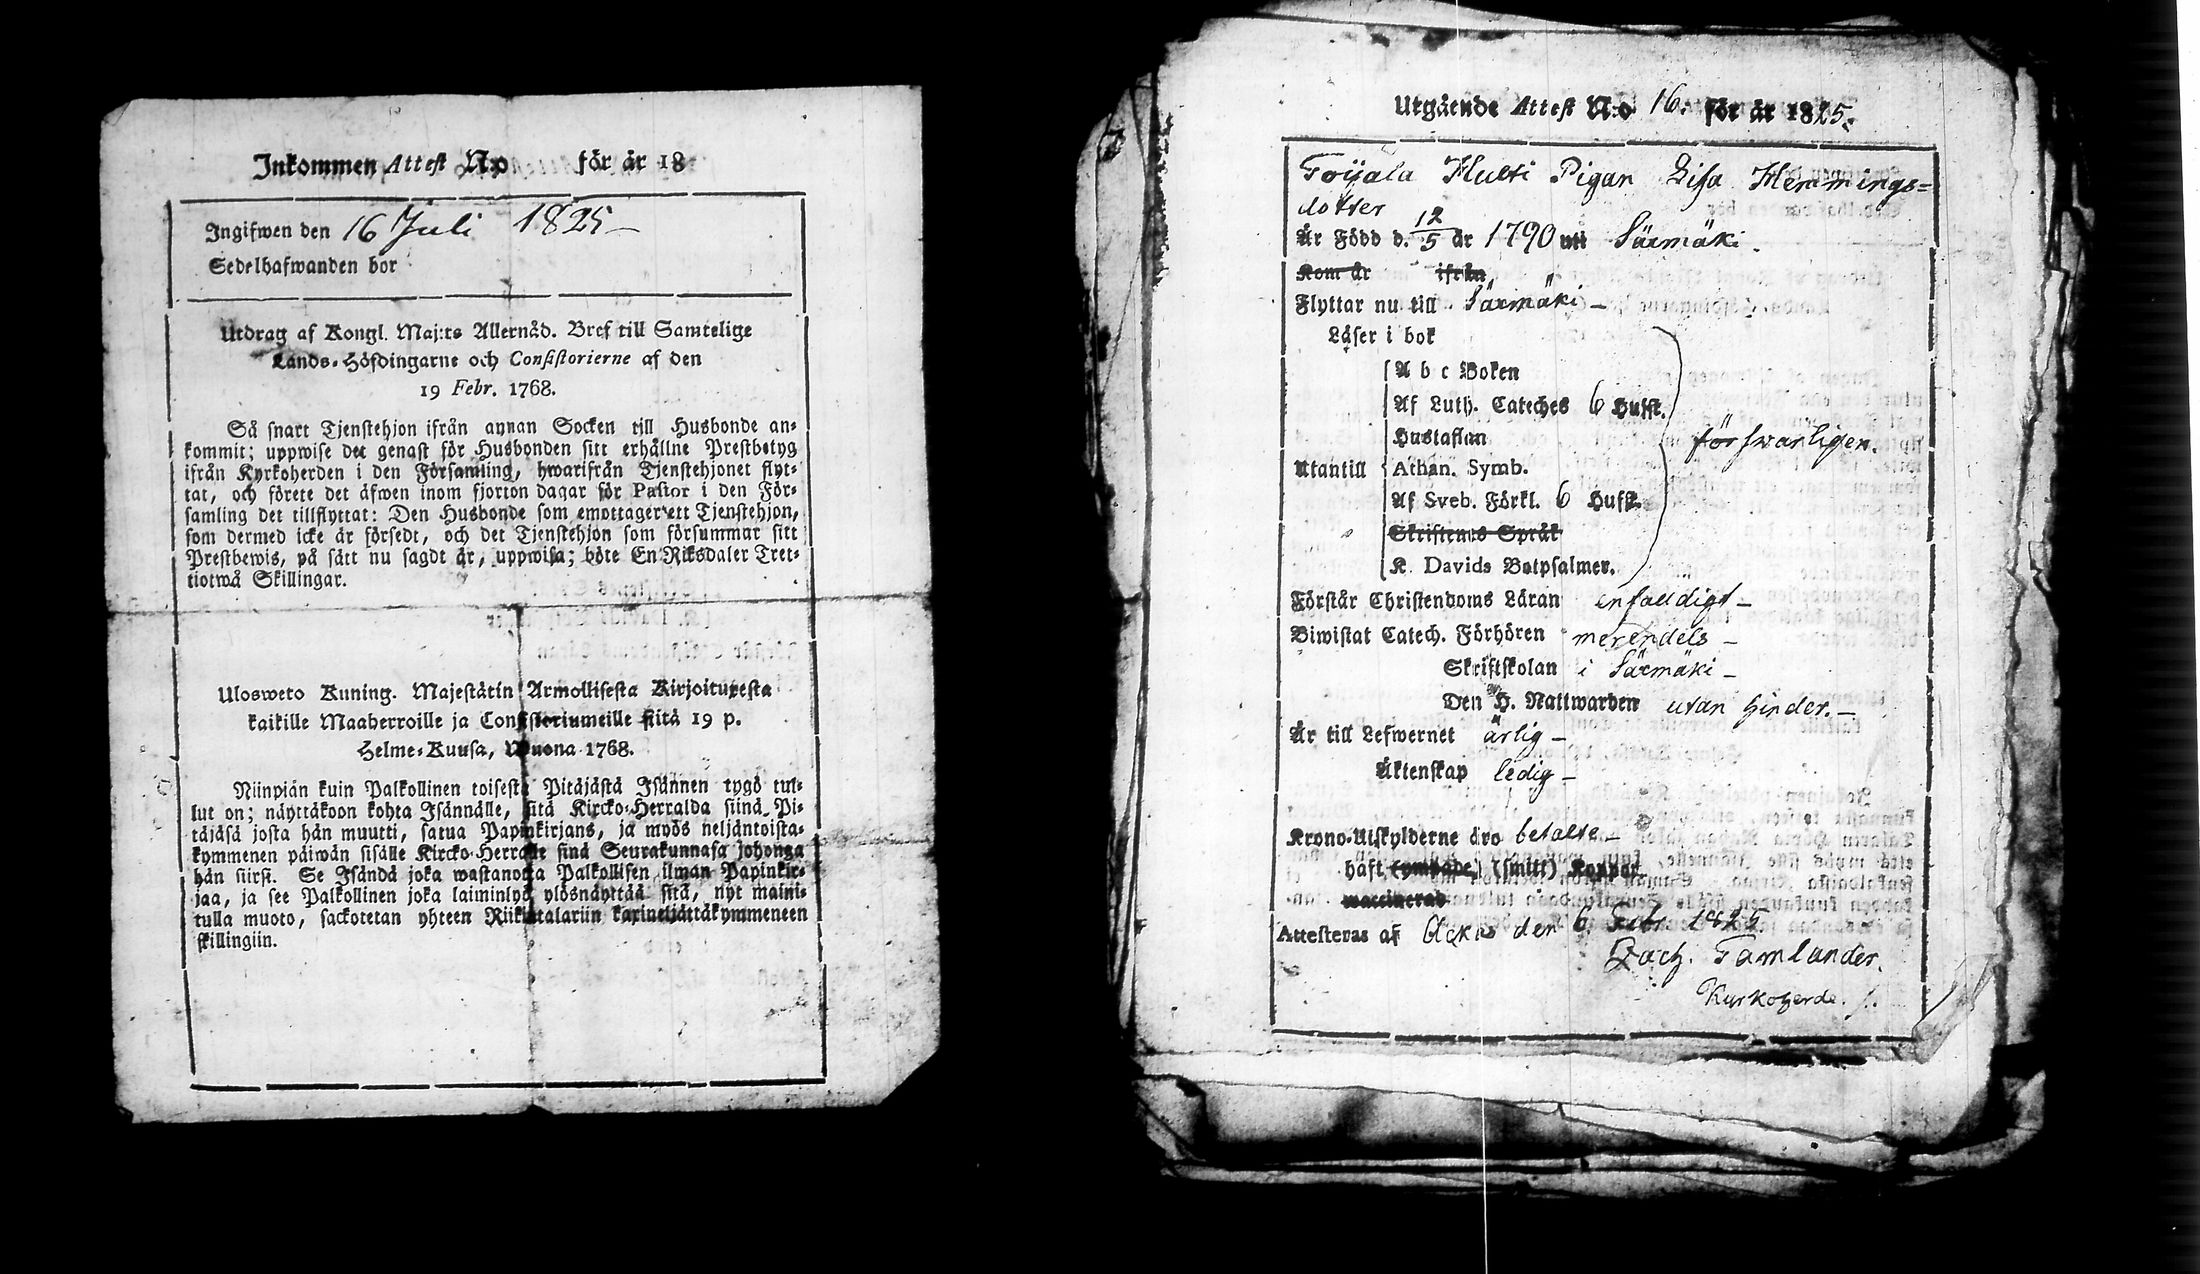 Inkommen Attest N:o för år 18
Ingifwen den 16 Juli 1825
Sedelhafwanden bor
Utdrag af Kongl. Maj:ts Allernåd. Bref till Samtelige
Lands-Höfdingarne och Consistorierne af den
19 Febr. 1768.
Så snart Tjenstehjon ifrån annan Socken till Husbonde an-
kommit; uppwise det genast för Husbonden sitt erhållne Prestbetyg
ifrån Kyrkoherden i den Församling, hwarifrån Tjenstehjonet flyt-
tat, och förete det äfwen inom fjorton dagar för Pastor i den För-
samling det tillflyttat: Den Husbonde som emottager ett Tjenstehjon,
som dermed icke är försedt, och det Tjenstehjon som försummar sitt
Prestbewis, på sätt nu sagdt är, uppwisa; böte En Riksdaler Tret-
tiotwå Skillingar.
Ulosweto Kuning. Majestätin Armollisesta Kirjoituxesta
kaikille Maaherroille ja Consistoriumeille siitä 19 p.
Helme-Kuusa, Wuona 1768.
Niinpiän kuin Palkollinen toisesta Pitäjästä Isännen tygö tul-
lut on; näyttäkoon kohta Isännälle, sitä Kircko-Herralda siinä Pi-
täjäsä josta hän muutti, saatua Papinkirjans, ja myös neljäntoista-
kymmenen päiwän sisälle Kircko-Herralle sinä Seurakunnasa johonga
hän siirsi. Se Isändä joka wastanottaa Palkollisen ilman Papinkir-
jaa, ja see Palkollinen joka laiminlyö ylösnäyttää sitä, nyt maini-
tulla muoto, sackotetan yhteen Riikintalariin kaxineljättäkymmeneen
skillingiin.
Utgående Attest N:o 16. för år 1825.
Töijala Hulti Pigan Lisa Hemmings=
dotter
Är Född d. 12/5 år 1790 uti Särmäki.
Kom år ifrån
Flyttar nu till Särmäki
Läser i bok
A b c Boken
Af Luth. Cateches 6 Hufst.
Hustaflan
Utantill Athan. Symb. försvarligen.
Af Sveb. Förkl. 6 Hufst.
Skriftenes Språk
K. Davids Botpsalmer.
Förstår Christendoms Läran enfalldigt
Biwistat Catech. Förhören merendels
Skriftskolan i Särmäki
Den H. Nattwarden utan hinder.
Är till Lefwernet ärlig
Äktenskap ledig
Krono-Utskylderne äro betalte
haft (ympade) (smitt) Koppor
waccinerad
Attesteras af den 6 Febr. 1825
Zach. Tamlander.
Kyrkoherde.